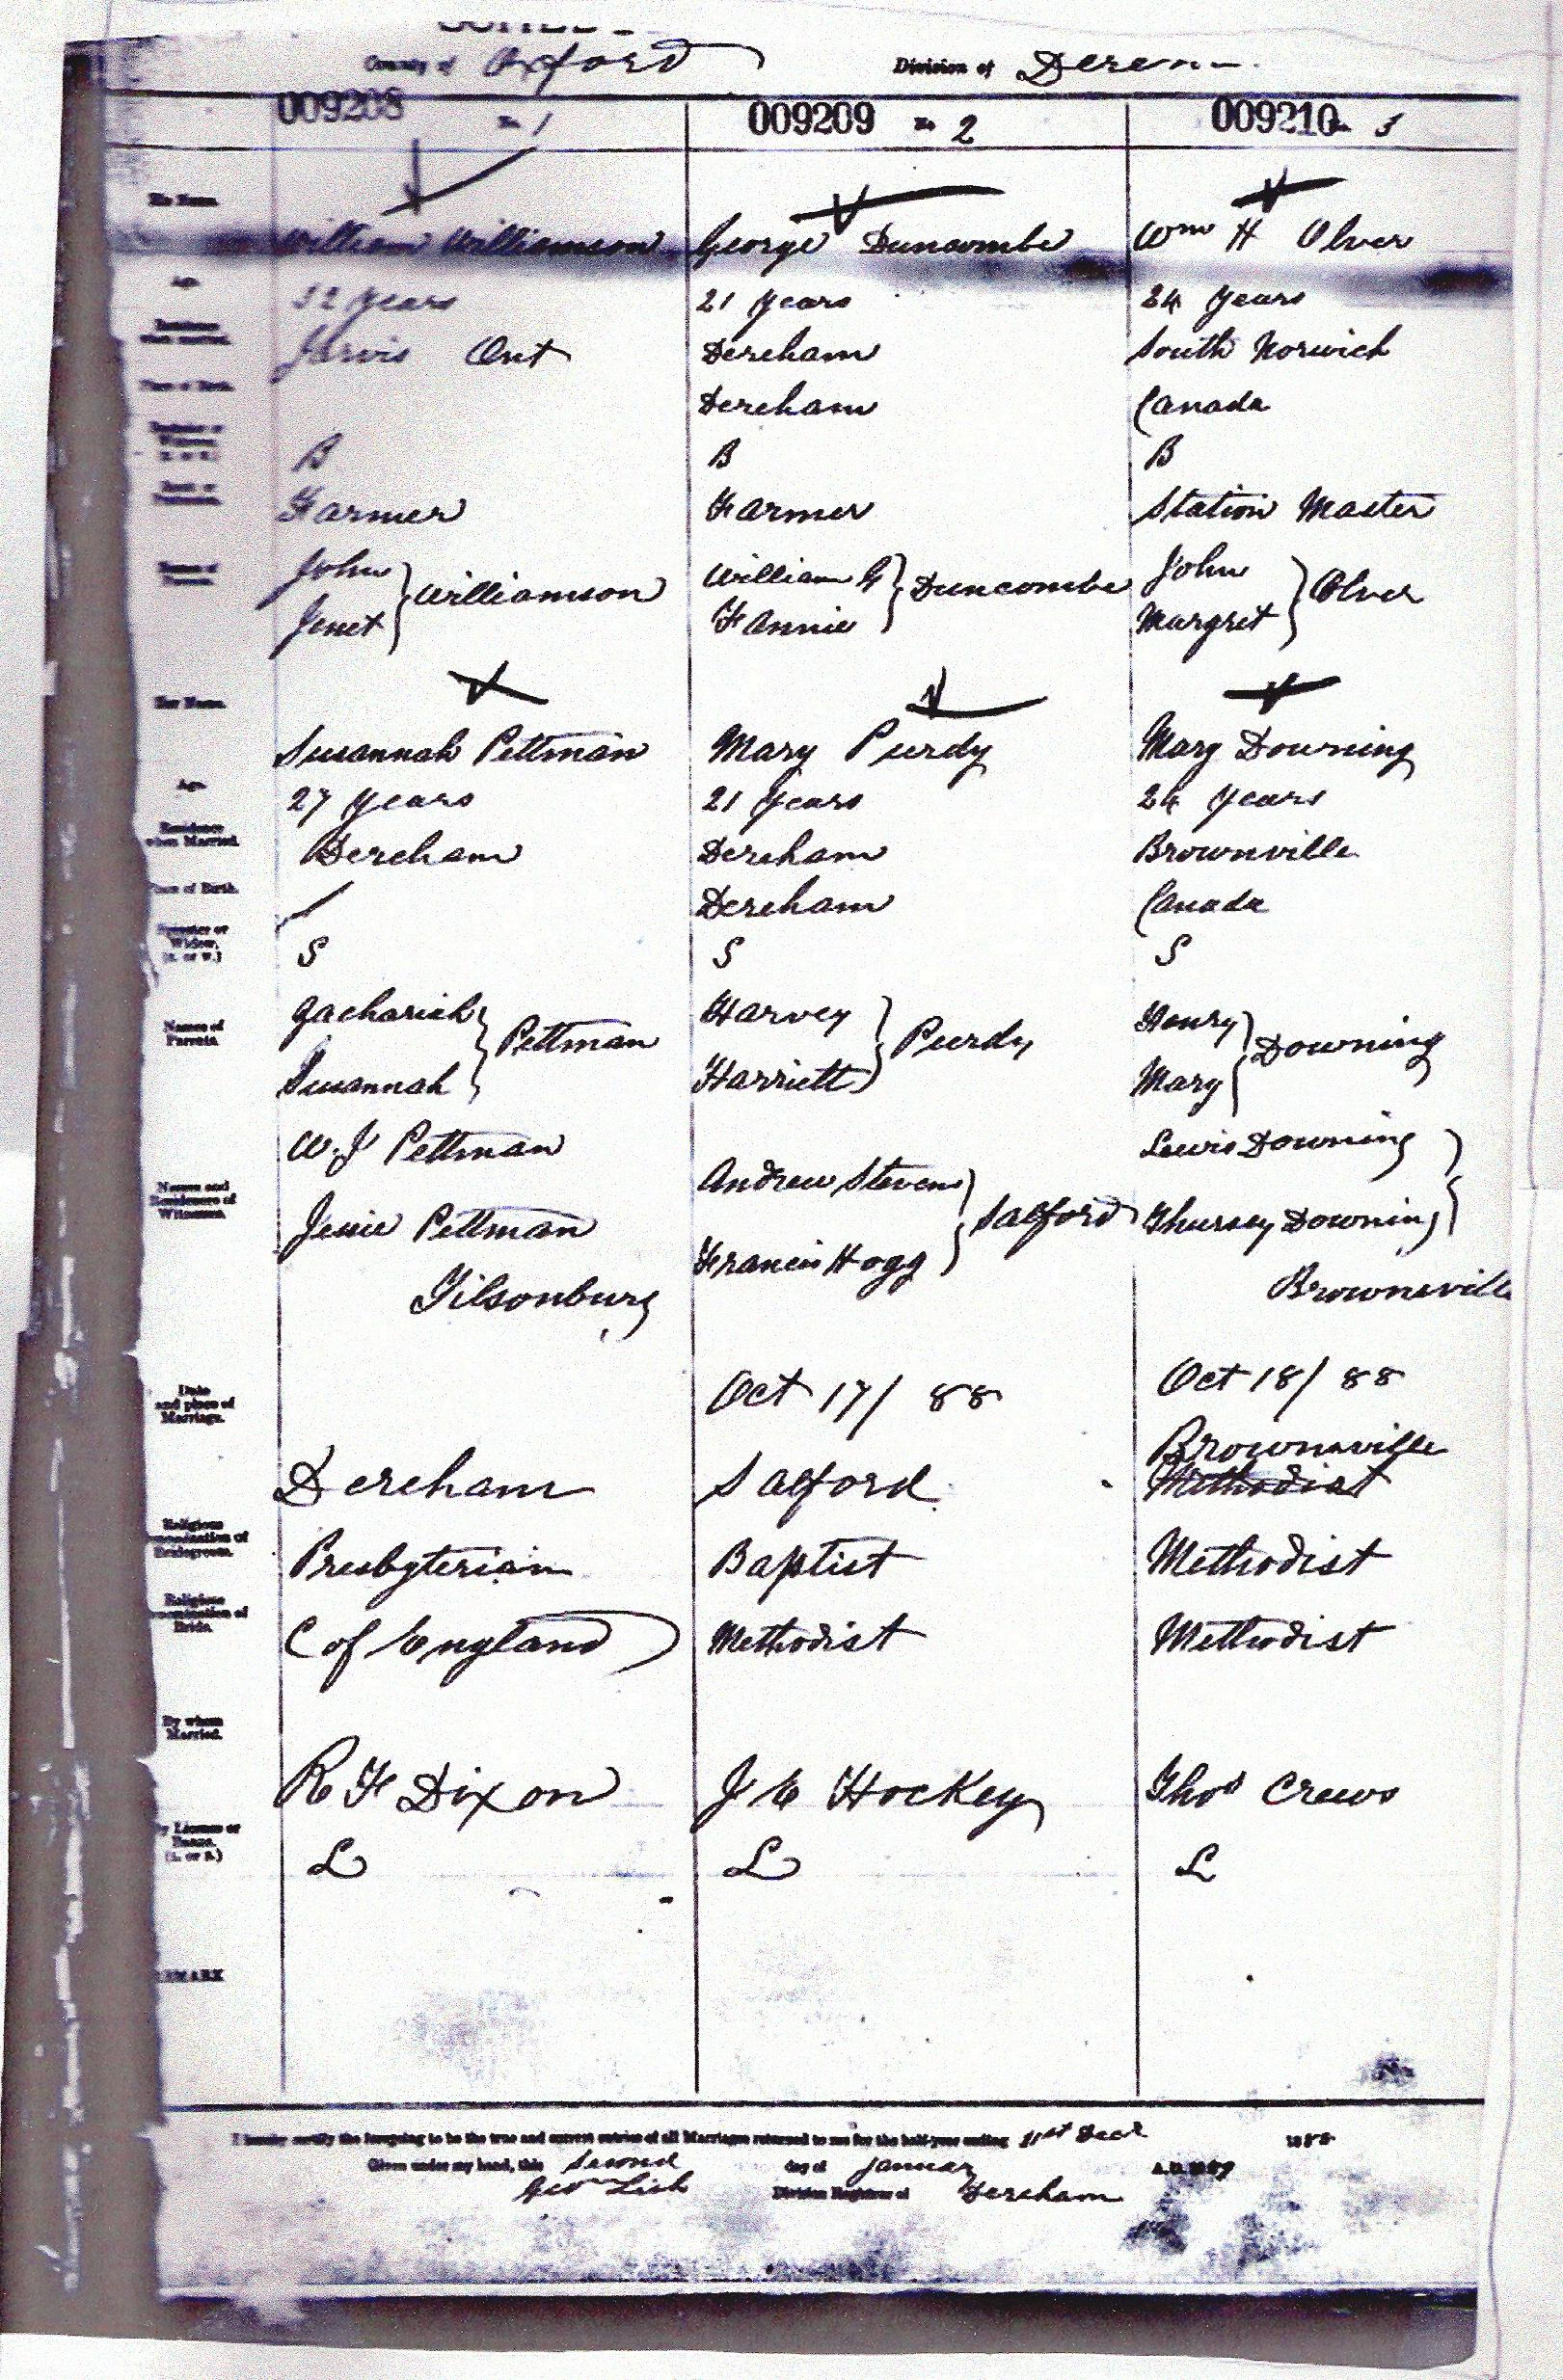 County of Oxford Division of Dereham
009208 No 1 009209 No 2 009210 No 3
His Name. William Williamson George Duncombe Wm H Olver
Age. 32 Years 21 Years 24 Years
Residence when married. Jarvis Ont Dereham South Norwich
Place of Birth. Dereham Canada
Bachelor or Widower, B B B
Farmer Farmer Station Master
Names of Parents. John Jenet } Williamson William G Fannie } Duncombe John Margret } Olver
Her Name. Susannah Pettman Mary Purdy Mary Downing
Age. 27 Years 21 Years 24 Years
Residence when Married. Dereham Dereham Brownville
Place of Birth. Dereham Canada
Spinster or Widow, (S. or W.) S S S
Names of Parents. Zachariah Susannah } Pettman Harvey Harriett } Purdy Henry Mary } Downing
Names and Residences of Witnesses. W. J Pettman Andrew Stevens Francis Hogg } Salford Lewis Downing
Jessie Pettman Thursey Downing }
Tilsonburg Brownsville
Date and place of Marriage. Oct 17/ 88 Oct 18/ 88
Brownsville
Dereham Salford Methodist
Religious Denomination of Bridegroom. Presbyterian Baptist Methodist
Religious Denomination of Bride. C of England Methodist Methodist
By whom Married. R F Dixon J E Hockey Thos Crews
By License or Banns. (L. or B.) L L L
REMARK
I hereby certify the foregoing to be the true and correct entries of all Marriages returned to me for the half-year ending 31st Decr 1888
Given under my hand, this Second day of January A.D. 1889
Geo Division Registrar of Dereham